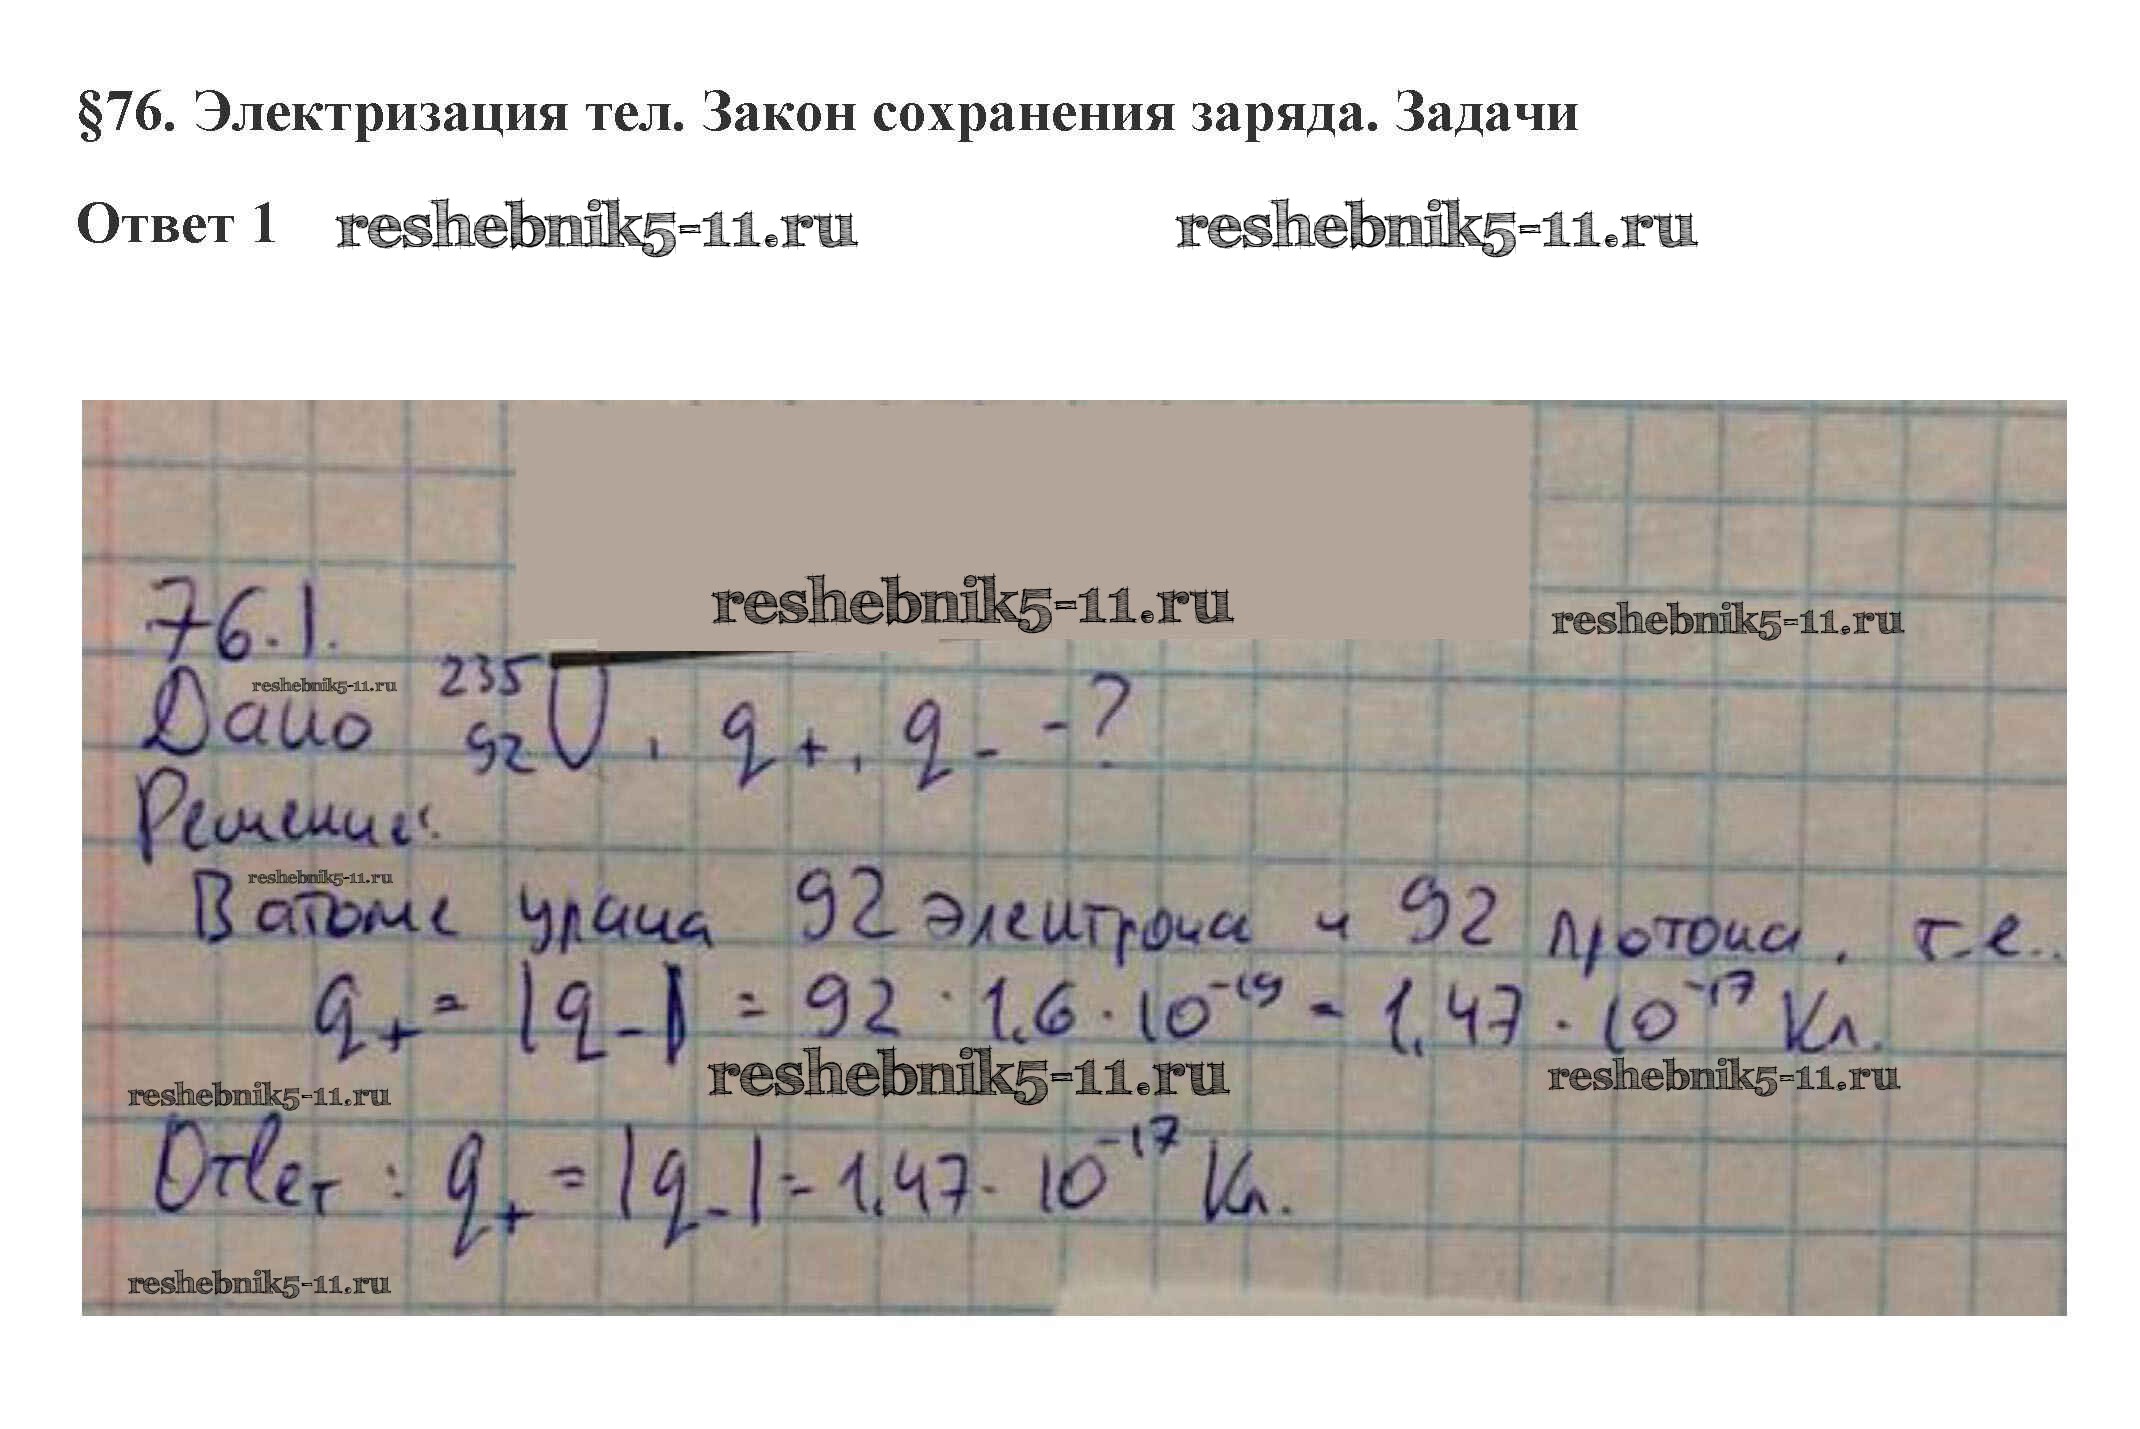 §76. Электризация тел. Закон сохранения заряда. Задачи
Ответ 1 reshebnik5-11.ru reshebnik5-11.ru
reshebnik5-11.ru reshebnik5-11.ru
76.1.
reshebnik5-11.ru
Дано ²³⁵₉₂U, q₊, q₋ - ?
Решение:
reshebnik5-11.ru
В атоме урана 92 электрона и 92 протона, т.е.
q₊ = |q₋| = 92 · 1,6 · 10⁻¹⁹ = 1,47 · 10⁻¹⁷ Кл.
reshebnik5-11.ru reshebnik5-11.ru reshebnik5-11.ru
Ответ: q₊ = |q₋| = 1,47 · 10⁻¹⁷ Кл.
reshebnik5-11.ru